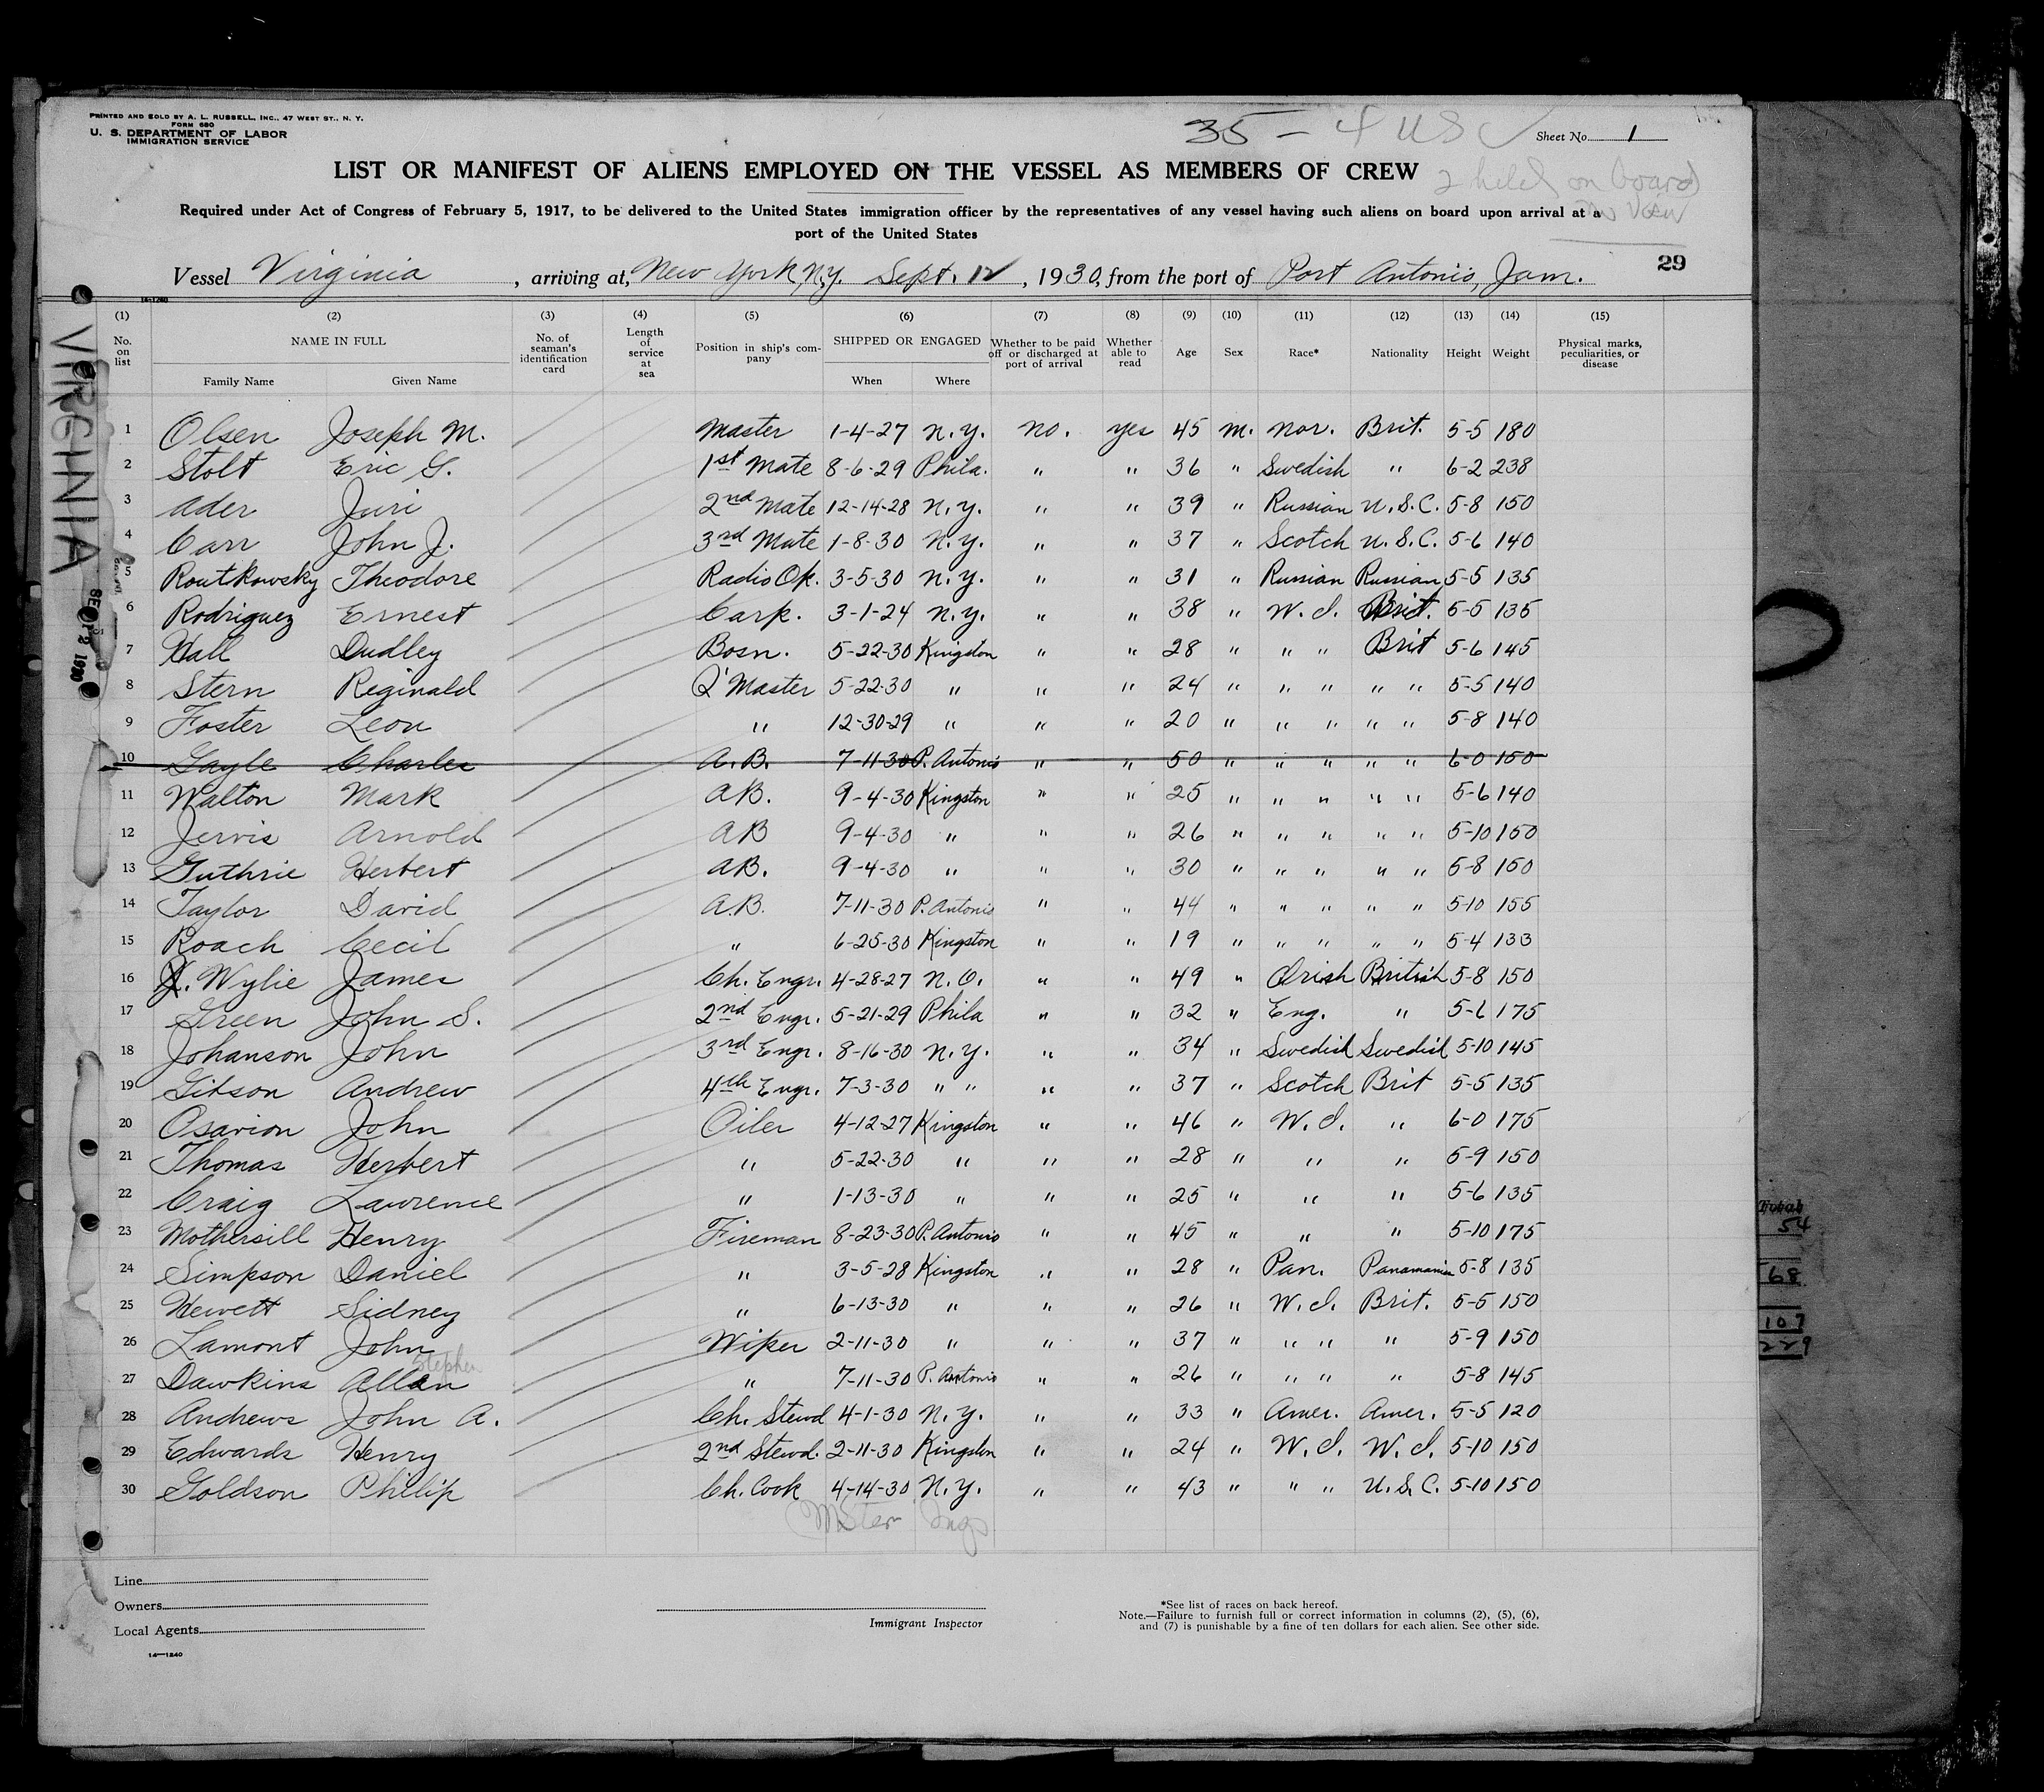 PRINTED AND SOLD BY A. L. RUSSELL, INC., 47 WEST ST., N. Y.
FORM 680
U. S. DEPARTMENT OF LABOR
IMMIGRATION SERVICE
35 - 4 USC
Sheet No. 1
LIST OR MANIFEST OF ALIENS EMPLOYED ON THE VESSEL AS MEMBERS OF CREW
2 held on board
Required under Act of Congress of February 5, 1917, to be delivered to the United States immigration officer by the representatives of any vessel having such aliens on board upon arrival at a
port of the United States
29
Vessel Virginia, arriving at, New York, N.Y. Sept. 12, 1930, from the port of Port Antonio, Jam.
14-1240
VIRGINIA
(1) (2) (3) (4) (5) (6) (7) (8) (9) (10) (11) (12) (13) (14) (15)
No. on list NAME IN FULL No. of seaman's identification card Length of service at sea Position in ship's company SHIPPED OR ENGAGED Whether to be paid off or discharged at port of arrival Whether able to read Age Sex Race* Nationality Height Weight Physical marks, peculiarities, or disease
Family Name Given Name When Where
1 Olsen Joseph M. Master 1-4-27 N.Y. no. yes 45 m. Nor. Brit. 5-5 180
2 Stolt Eric G. 1st Mate 8-6-29 Phila. " " 36 " Swedish " 6-2 238
3 Ader Juri 2nd Mate 12-14-28 N.Y. " " 39 " Russian U.S.C. 5-8 150
4 Carr John J. 3rd Mate 1-8-30 N.Y. " " 37 " Scotch U.S.C. 5-6 140
5 Routkowsky Theodore Radio Op. 3-5-30 N.Y. " " 31 " Russian Russian 5-5 135
6 Rodriguez Ernest Carp. 3-1-24 N.Y. " " 38 " W.I. Brit. 5-5 135
7 Hall Dudley Bosn. 5-22-30 Kingston " " 28 " " " Brit 5-6 145
8 Stern Reginald Q'Master 5-22-30 " " " 24 " " " " " 5-5 140
9 Foster Leon " 12-30-29 " " " 20 " " " " " 5-8 140
10 Gayle Charles A.B. 7-11-30 P. Antonio " " 50 " " " " " 6-0 150
11 Walton Mark AB. 9-4-30 Kingston " " 25 " " " " " 5-6 140
12 Jervis Arnold AB 9-4-30 " " " 26 " " " " " 5-10 150
13 Guthrie Herbert AB. 9-4-30 " " " 30 " " " " " 5-8 150
14 Taylor David A.B. 7-11-30 P. Antonio " " 44 " " " " " 5-10 155
15 Roach Cecil " 6-25-30 Kingston " " 19 " " " " " 5-4 133
16 J. Wylie James Ch. Engr. 4-28-27 N.O. " " 49 " Irish British 5-8 150
17 Green John S. 2nd Engr. 5-21-29 Phila " " 32 " Eng. " 5-6 175
18 Johanson John 3rd Engr. 8-16-30 N.Y. " " 34 " Swedish Swedish 5-10 145
19 Gibson Andrew 4th Engr. 7-3-30 " " " " 37 " Scotch Brit 5-5 135
20 Osarion John Oiler 4-12-27 Kingston " " 46 " W.I. " 6-0 175
21 Thomas Herbert " 5-22-30 " " " 28 " " " 5-9 150
22 Craig Lawrence " 1-13-30 " " " 25 " " " 5-6 135
23 Mothersill Henry Fireman 8-23-30 P. Antonio " " 45 " " " 5-10 175
24 Simpson Daniel " 3-5-28 Kingston " " 28 " Pan. Panamanian 5-8 135
25 Hewett Sidney " 6-13-30 " " " 26 " W.I. Brit. 5-5 150
26 Lamont John Wiper 2-11-30 " " " 37 " " " " 5-9 150
Stephen
27 Dawkins Allan " 7-11-30 P. Antonio " " 26 " " " " 5-8 145
28 Andrews John A. Ch. Stewd 4-1-30 N.Y. " " 33 " Amer. Amer. 5-5 120
29 Edwards Henry 2nd Stewd. 2-11-30 Kingston " " 24 " W.I. W.I. 5-10 150
30 Goldson Philip Ch. Cook 4-14-30 N.Y. " " 43 " " " U.S.C. 5-10 150
Line
Owners
Local Agents
Immigrant Inspector
*See list of races on back hereof.
Note.—Failure to furnish full or correct information in columns (2), (5), (6),
and (7) is punishable by a fine of ten dollars for each alien. See other side.
14—1240
Total
54
68
107
229